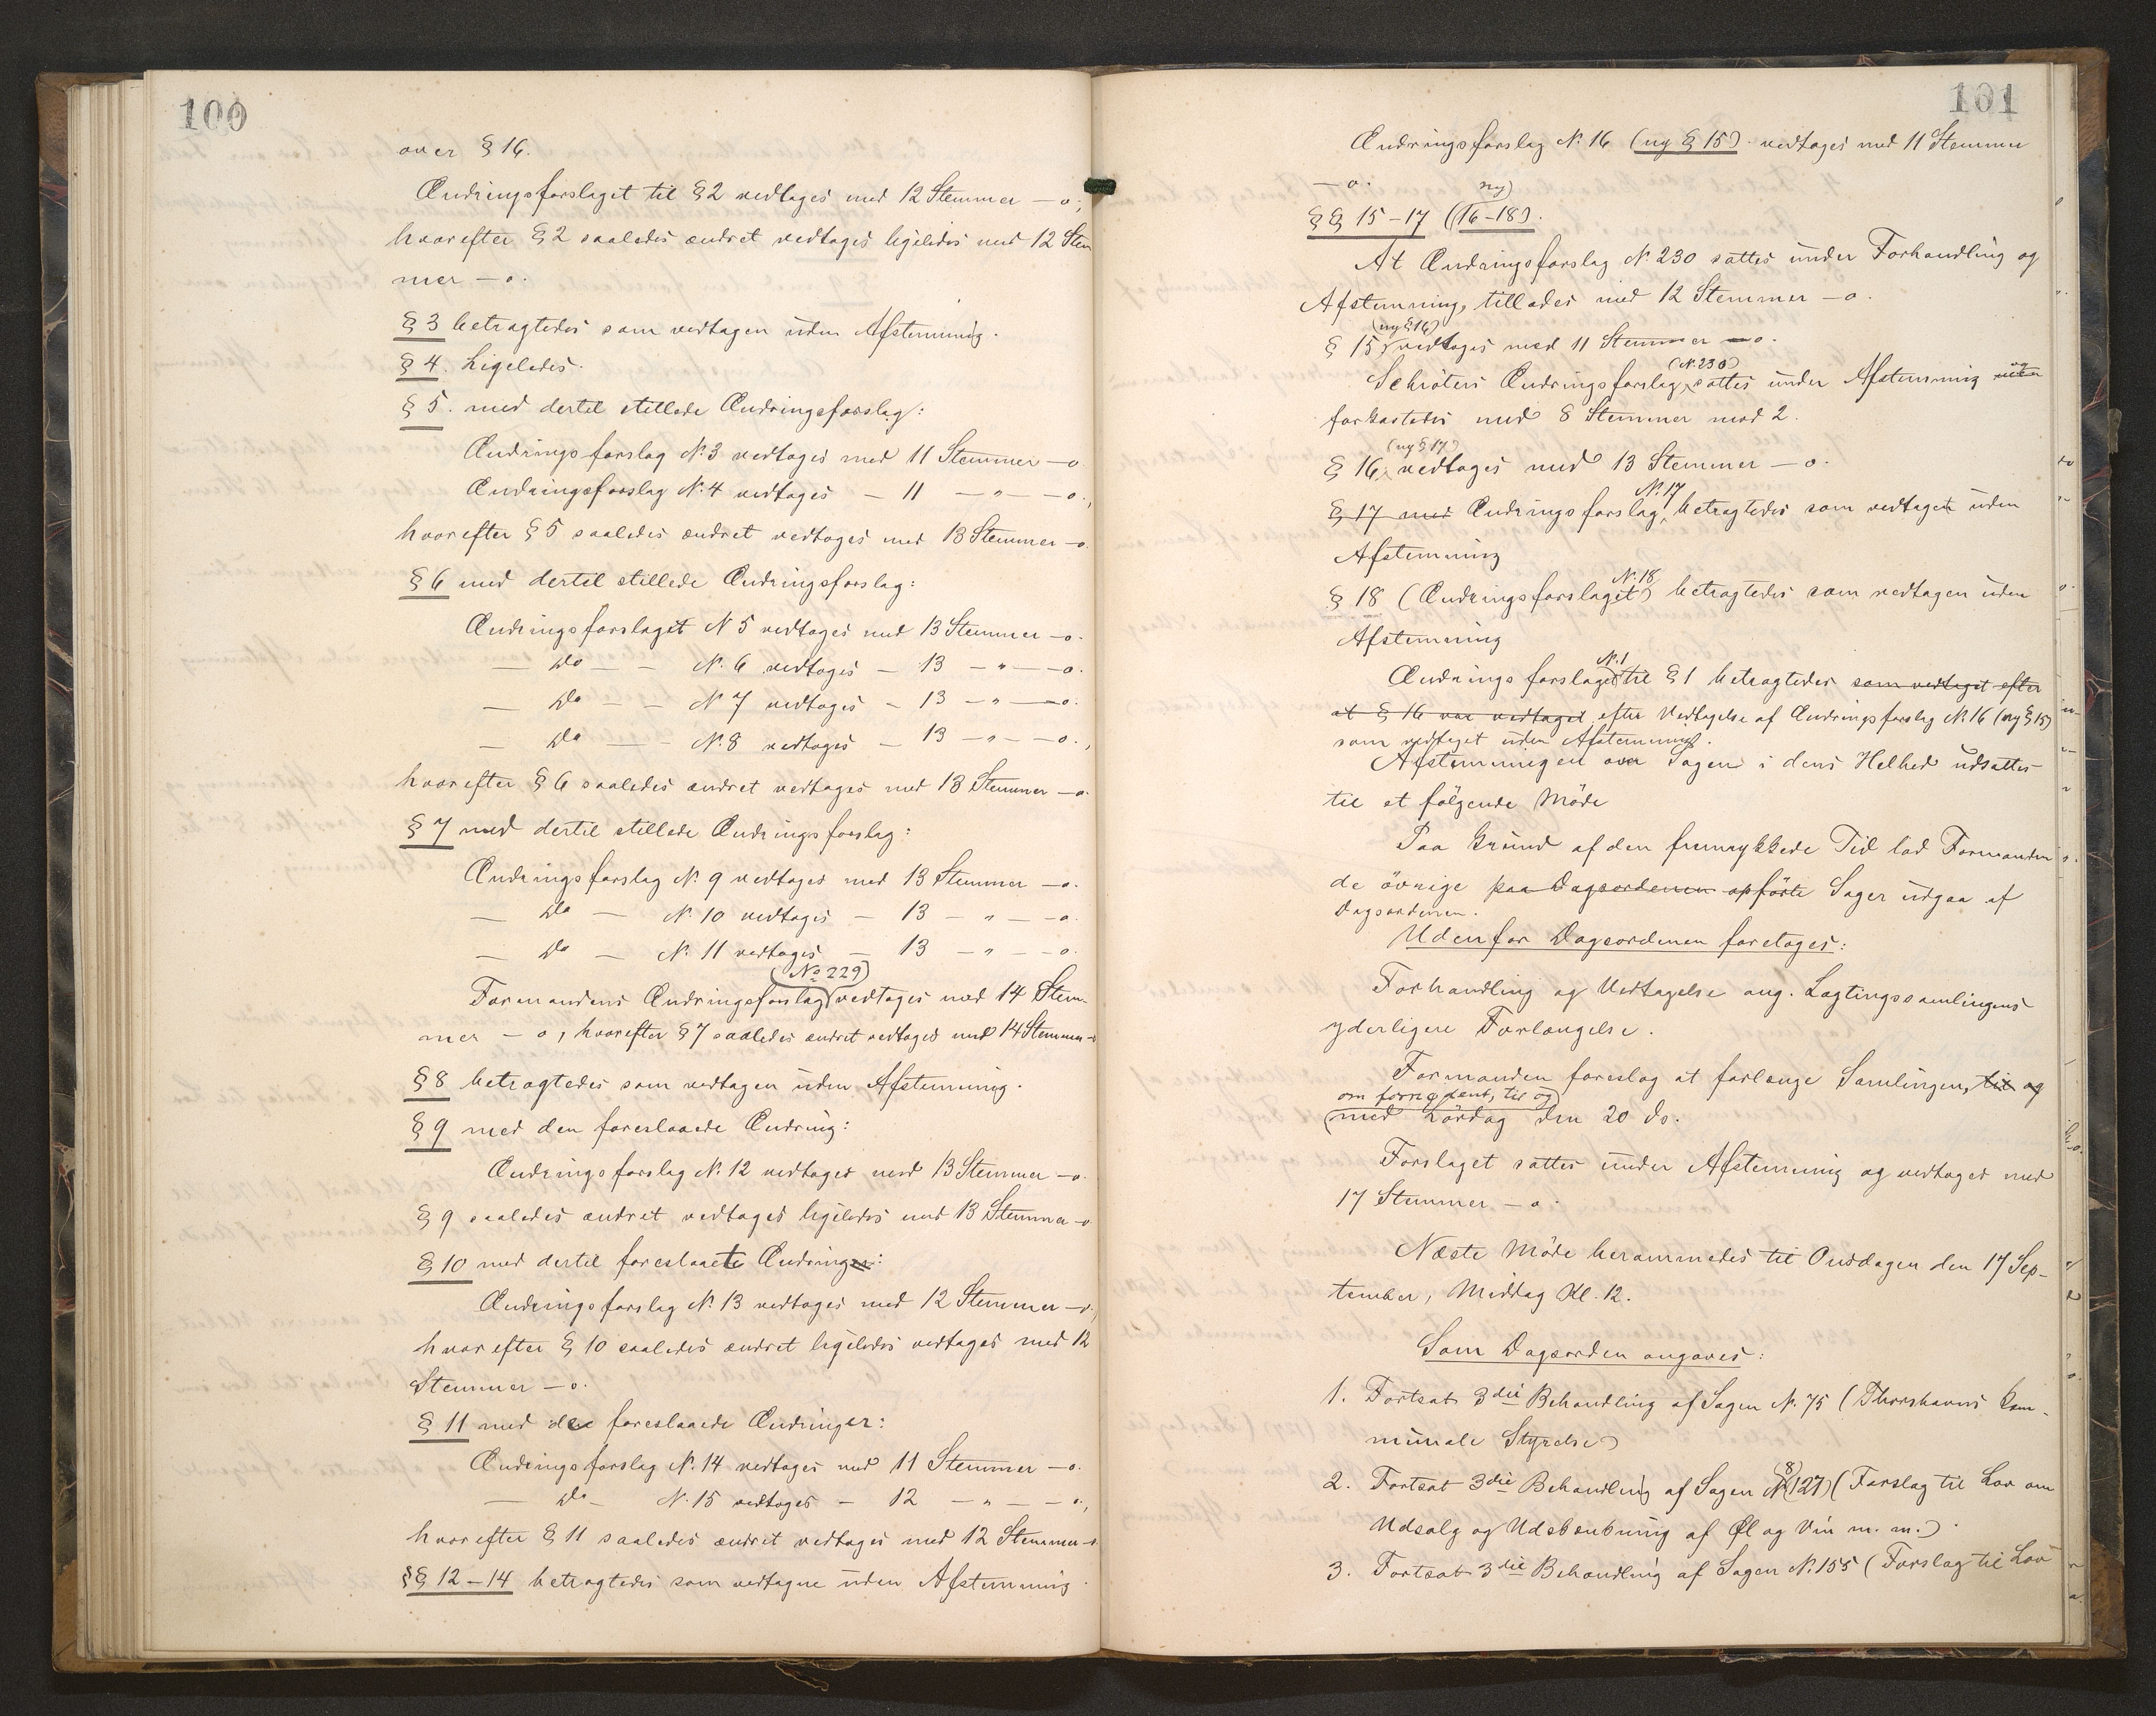 100
over § 16.
Ændringsforslaget til § 2 vedtoges med 12 Stemmer – o;
hvorefter § 2 saaledes ændret vedtoges ligeledes med 12 Stem
mer – o.
§ 3 betragtedes som vedtagen uden Afstemning.
§ 4. Ligeledes.
§ 5. med dertil stillede Ændringsforslag:
Ændringsforslag N. 3 vedtoges med 11 Stemmer – o
Ændringsforslag N. 4 vedtoges – 11 – " – – o.,
hvorefter § 5 saaledes ændret vedtoges med 13 Stemmer – o.
§ 6 med dertil stillede Ændringsforslag:
Ændringsforslaget N 5 vedtoges med 13 Stemmer – o.
– Do – – N. 6 vedtoges – 13 – " – – o.
– Do – – N 7 vedtoges – 13 – " – – o.
– Do – – N. 8 vedtoges – 13 – " – – o.,
hvorefter § 6 saaledes ændret vedtoges med 13 Stemmer – o.
§ 7 med dertil stillede Ændringsforslag:
Ændringsforslag N. 9 vedtoges med 13 Stemmer – o.
– Do – N. 10 vedtoges – 13 – " – – o.
– Do – N. 11 vedtoges – 13 – " – – o.
(No 229)
Formandens Ændringsforslag vedtoges med 14 Stem-
mer – o, hvorefter § 7 saaledes ændret vedtoges med 14 Stemmer – o
§ 8 betragtedes som vedtagen uden Afstemning.
§ 9 med den foreslaaede Ændring:
Ændringsforslag N. 12 vedtoges med 13 Stemmer – o.
§ 9 saaledes ændret vedtoges ligeledes med 13 Stemmer – o
§ 10 med dertil foreslaaete Ændringer:
Ændringsforslag N. 13 vedtoges med 12 Stemmer – o,
hvorefter § 10 saaledes ændret ligeledes vedtoges med 12
Stemmer – o.
§ 11 med de foreslaaede Ændringer:
Ændringsforslag N. 14 vedtoges med 11 Stemmer – o.
– Do – N. 15 vedtoges – 12 – " – – o.,
hvorefter § 11 saaledes ændret vedtoges med 12 Stemmer – o.
§§ 12–14 betragtedes som vedtagne uden Afstemning.
101
Ændringsforslag N. 16 (ny § 15). vedtoges med 11 Stemmer
– o.
ny)
§§ 15–17 (16–18).
At Ændringsforslag N. 230 sattes under Forhandling og
Afstemning, tillodes med 12 Stemmer – o.
(ny § 16)
§ 15 vedtoges med 11 Stemmer – o.
(N. 230)
Schröters Ændringsforslag sattes under Afstemning og
forkastedes med 8 Stemmer mod 2.
(ny § 17)
§ 16 vedtoges med 13 Stemmer – o.
N. 17
§ 17 med Ændringsforslag betragtedes som vedtaget uden
Afstemning
N. 18
§ 18 (Ændringsforslaget) betragtedes som vedtagen uden
Afstemning
N. 1
Ændringsforslaget til § 1 betragtedes som vedtaget efter
at § 16 var vedtaget efter Vedtagelse af Ændringsforslag N. 16 (ny § 15)
som vedtaget uden Afstemning.
Afstemningen over Sagen i dens Helhed udsattes
til et følgende Møde
Paa Grund af den fremrykkede Tid lod Formanden
de øvrige paa Dagsordenen opførte Sager udgaa af
Dagsordenen.
Udenfor Dagsordenen foretoges:
Forhandling og Vedtagelse ang. Lagtingssamlingens
yderligere Forlængelse.
Formanden foreslog at forlænge Samlingen, til og
om fornødent, til og
med Lördag den 20 ds.
Forslaget sattes under Afstemning og vedtoges med
17 Stemmer – o.
Næste Møde berammedes til Onsdagen den 17 Sep-
tember, Middag Kl. 12.
Som Dagsorden angaves:
1. Fortsat 3die Behandling af Sagen N. 75 (Thorshavns kom-
munale Styrelse)
8
2. Fortsat 3die Behandling af Sagen N (127) (Forslag til Lov om
Udsalg og Udskænkning af Øl og Vin m. m.)
3. Fortsat 3die Behandling af Sagen N. 155 (Forslag til Lov